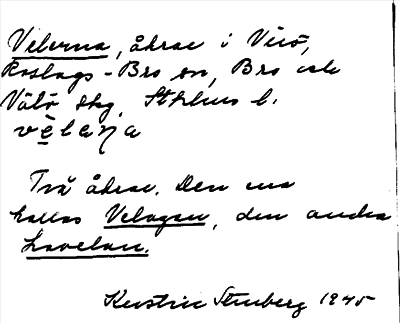 Velorna, åkrar i Virö,
Roslags-Bro sn, Bro och
Vätö skg, Sthlms l.
vèlaṇa
Två åkrar. Den ena
kallas Velagan, den andra
Lavelan.
Kerstin Stenberg 1945